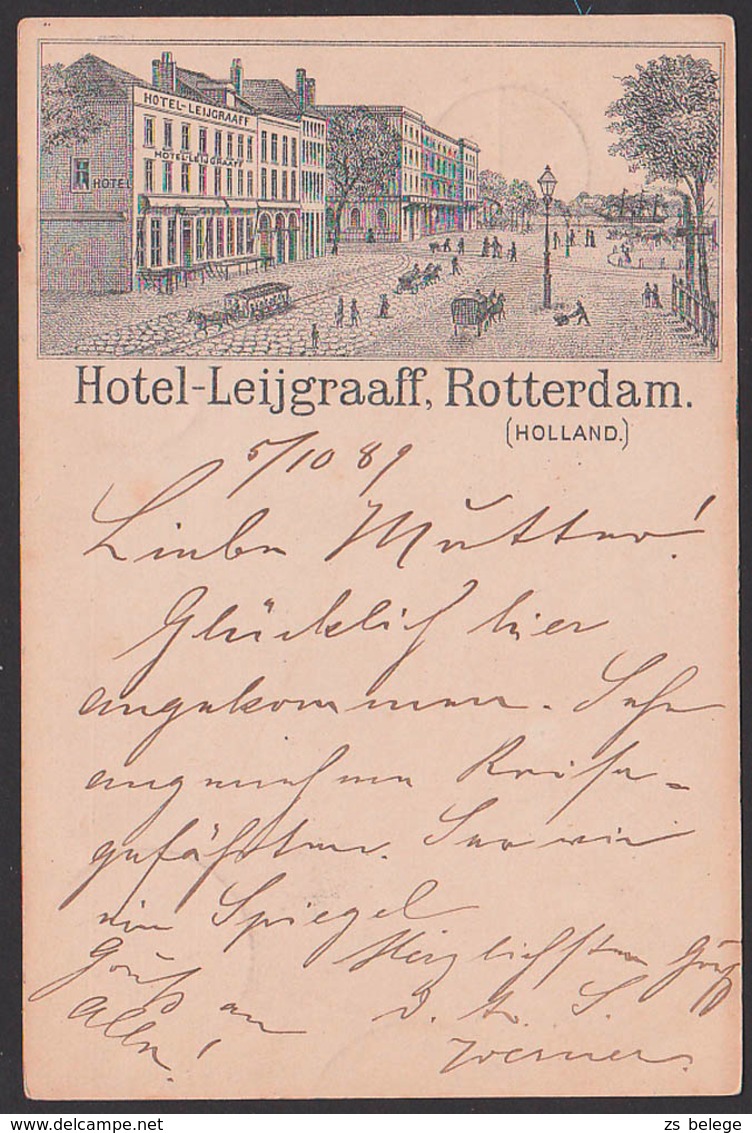 HOTEL-LEIJGRAAFF
HOTEL-LEIJGRAAFF
HOTEL
Hotel-Leijgraaff, Rotterdam.
(HOLLAND.)
5/10 89
Liebe Mutter!
Glücklich hier
angekommen. Sehr
angenehmen Reise-
gefährten. See wie
ein Spiegel
Herzlichsten Gruß
Gruß an
Alle!
d. tr. S.
Werner.
zs belege